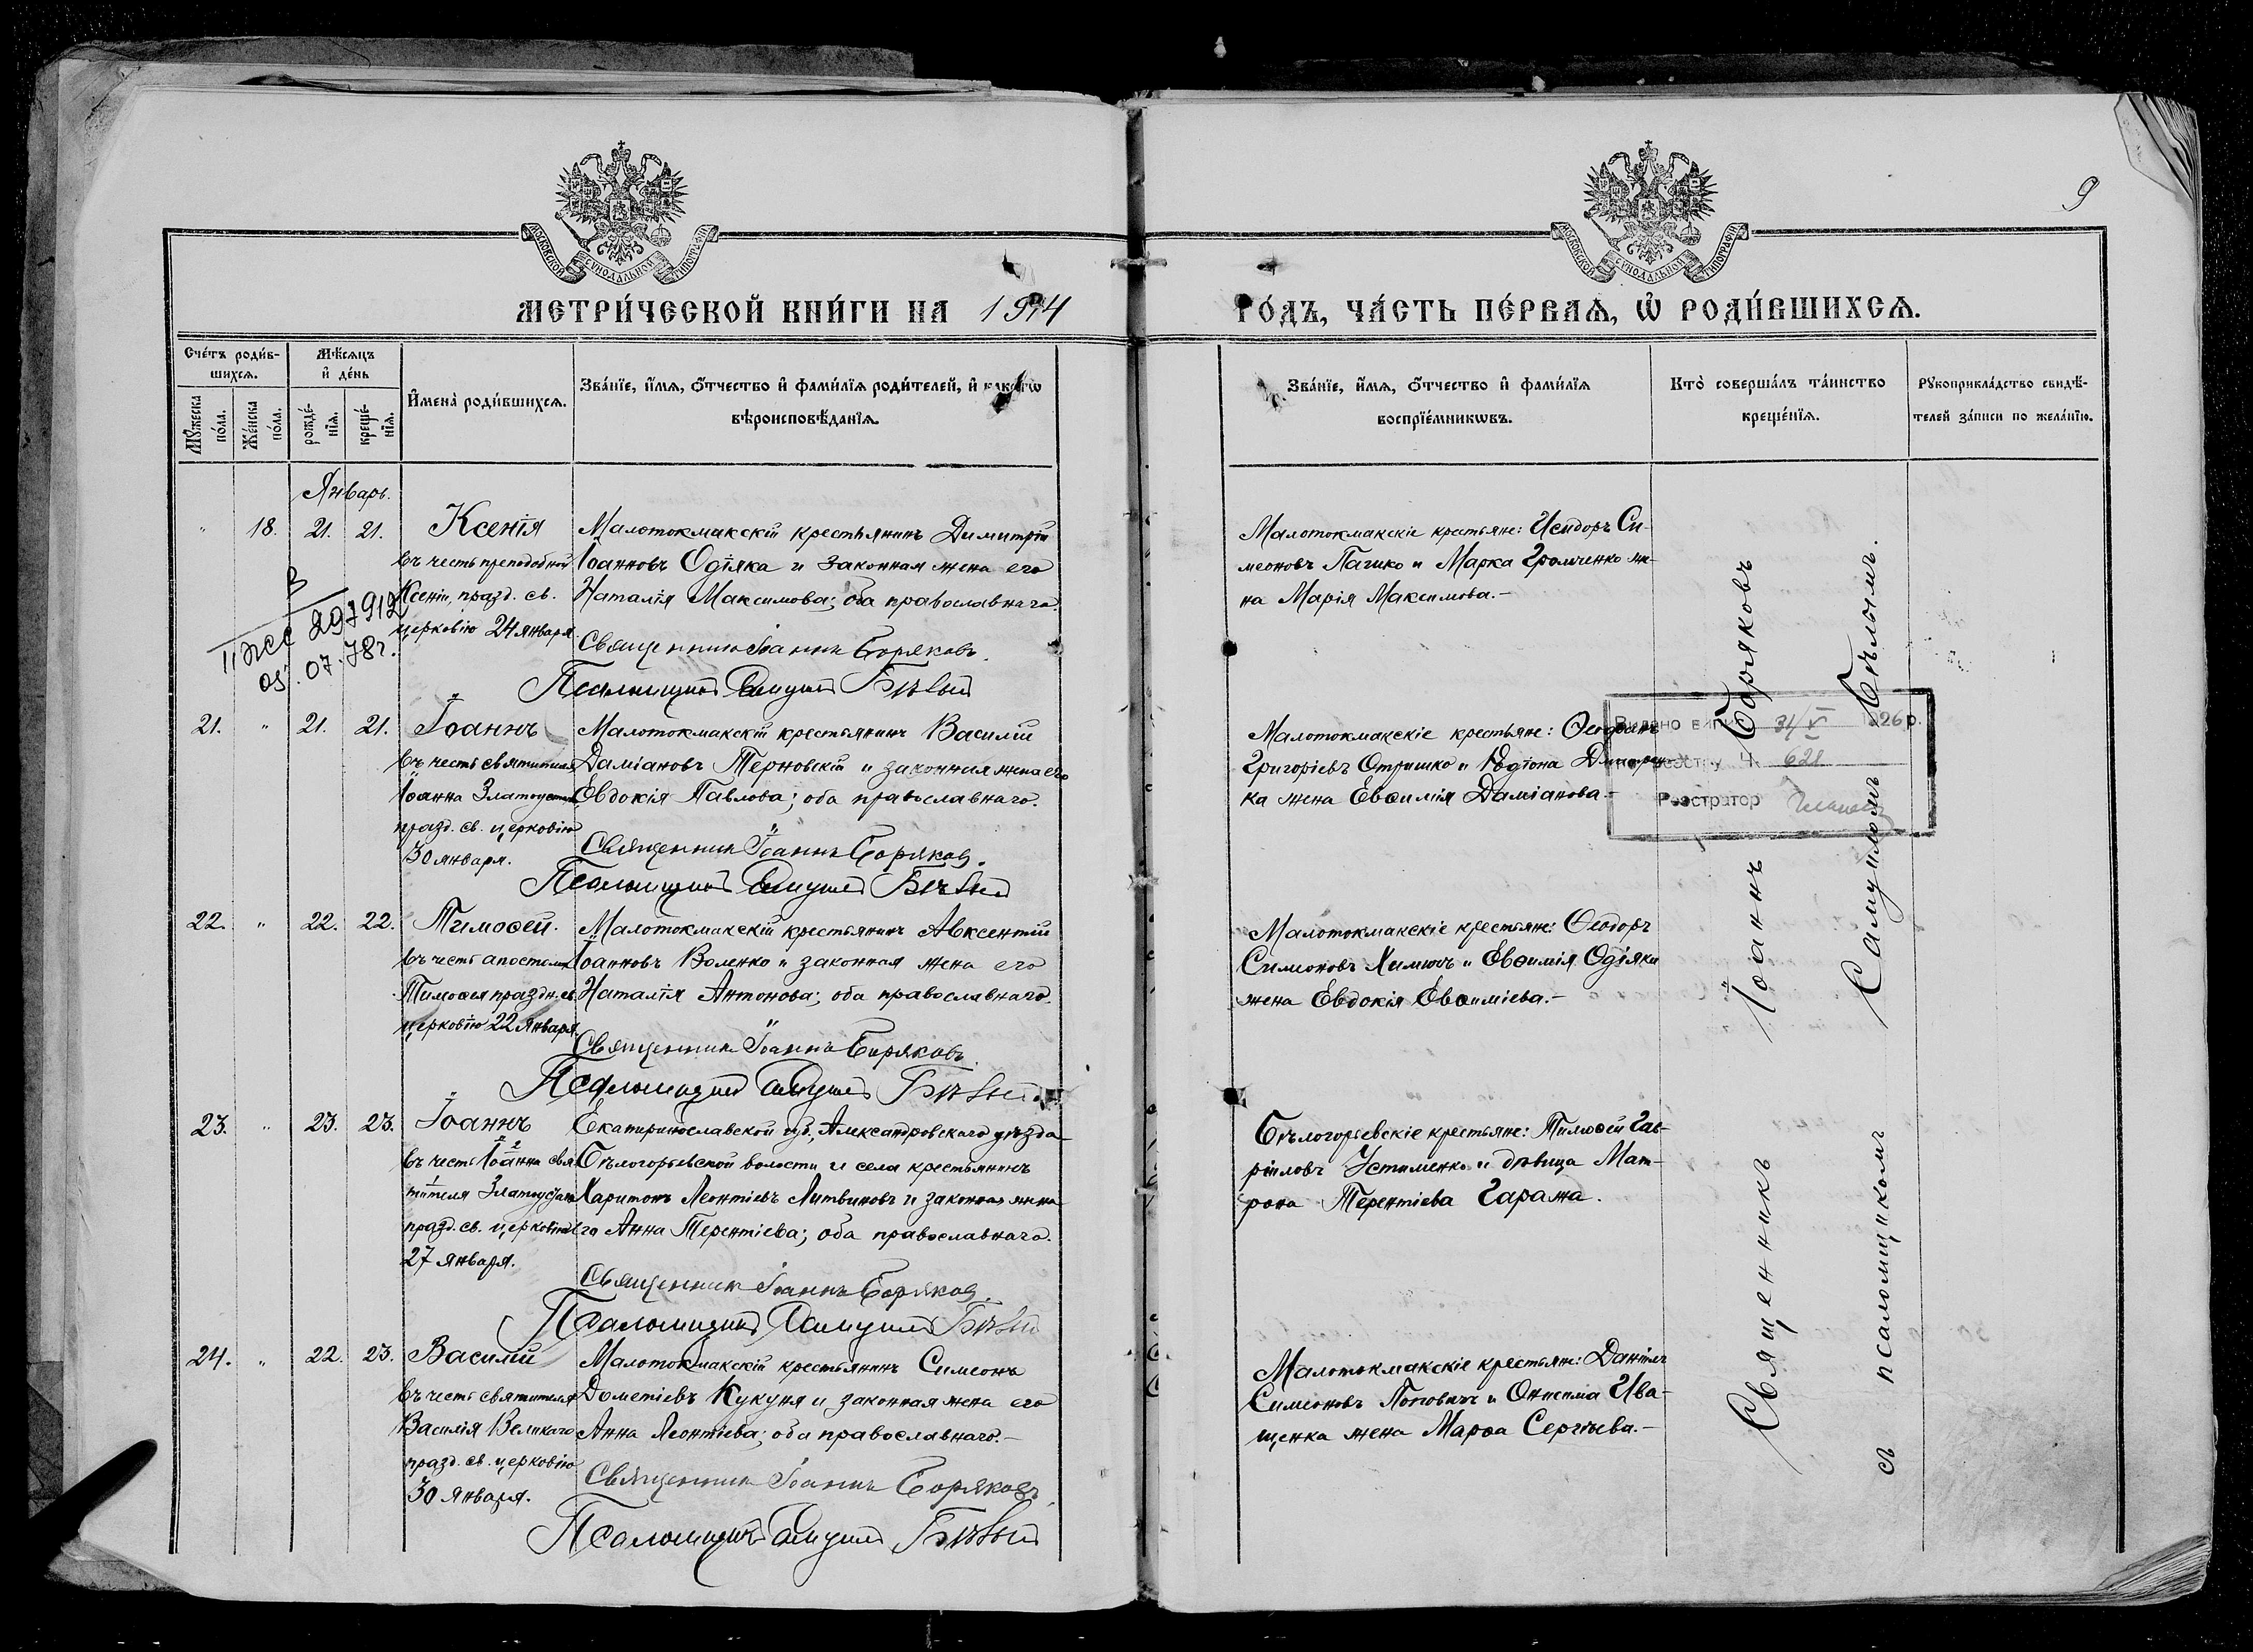 9
МОСКОВСКОЙ СѴНОДАЛЬНОЙ ТИПОГРАФІИ
МОСКОВСКОЙ СѴНОДАЛЬНОЙ ТИПОГРАФІИ
МЕТРИ́ЧЕСКОЙ КНИ́ГИ НА 1914
ГО́ДЪ, ЧА́СТЬ ПЕ́РВАѦ, Ѡ҆ РОДИ́ВШИХСѦ.
Сче́тъ роди́в-
шихсѧ.
Мѣ́сѧцъ
и҆ де́нь
Мꙋ́жеска
по́ла.
Же́нска
по́ла.
рожде́-
нїѧ.
креще́-
нїѧ.
И҆мена̀ роди́вшихсѧ.
Зва́нїе, и҆́мѧ, ѻ҆́тчество и҆ фами́лїѧ роди́телей, и҆ какогѡ
вѣроисповѣ́данїѧ.
Зва́нїе, и҆́мѧ, ѻ҆́тчество и҆ фами́лїѧ
воспрїе́мникѡвъ.
Кто̀ соверша́лъ та́инство
креще́нїѧ.
Рꙋкоприкла́дство свидѣ́-
телей за́писи по жела́нїю.
Январь.
18. 21. 21. Ксенія
въ честь преподобной
Ксеніи, празд. св.
церковію 24 января
Малотокмакскій крестьянинъ Димитрій
Іоанновъ Одіяка и законная жена его
Наталія Максимова; оба православнаго.
Священникъ Іоаннъ Боряковъ.
Псаломщикъ Самуилъ Бѣлый
Малотокмакскіе крестьяне: Исидоръ Си-
меоновъ и Марка Громченко же-
на Марія Максимова.-
297912
05.07.78г.
21. " 21. 21. Іоаннъ
въ честь святителя
Іоанна Златоустаго
празд. св. церковію
30 января.
Малотокмакскій крестьянинъ Василій
Даміановъ Терновскій и законная жена его
Евдокія Павлова; оба православнаго.
Священникъ Іоаннъ Боряковъ.
Псаломщикъ Самуилъ Бѣлый
Малотокмакскіе крестьяне:
Григоріевъ Отришко и Родіона
ка жена Евѳимія Даміанова.-
Видано 31/V 1926 р.
Ч. 628
Реєстратор
22. " 22. 22. Тимоѳей.
въ честь апостола
Тимоѳея праздн. св.
церковію 22 января.
Малотокмакскій крестьянинъ Авксентій
Іоанновъ Воленко и законная жена его
Наталія Антонова; оба православнаго.
Священникъ Іоаннъ Боряковъ.
Псаломщикъ Самуилъ Бѣлый
Малотокмакскіе крестьяне: Ѳеодоръ
Симеоновъ и Евѳимія Одіяки
жена Евдокія Евѳиміева.-
23. " 23. 23. Іоаннъ
въ честь Іоанна свя-
тителя Златоустаго
празд. св. церковію
27 января.
Екатеринославской губ., Александровскаго уѣзда
Бѣлогорьевской волости и села крестьянинъ
Харитонъ Леонтіевъ Литвиновъ и законная жена
его Анна Терентіева; оба православнаго.
Священникъ Іоаннъ Боряковъ.
Псаломщикъ Самуилъ Бѣлый
Бѣлогорьевскіе крестьяне: Тимоѳей Гав-
ріиловъ Устименко и дѣвица Мат-
рона Терентіева Гаража.
24. " 22. 23. Василій
въ честь святителя
Василія Великаго
празд. св. церковію
30 января.
Малотокмакскій крестьянинъ Симеонъ
Дометіевъ Кукуня и законная жена его
Анна Леонтіева; оба православнаго.-
Священникъ Іоаннъ Боряковъ
Псаломщикъ Самуилъ Бѣлый
Малотокмакскіе крестьяне: Даніилъ
Симеоновъ Поповичъ и Онисима Ива-
щенка жена Марѳа Сергіева.-
Священникъ Іоаннъ Боряковъ
съ псаломщикомъ Самуиломъ Бѣлымъ.